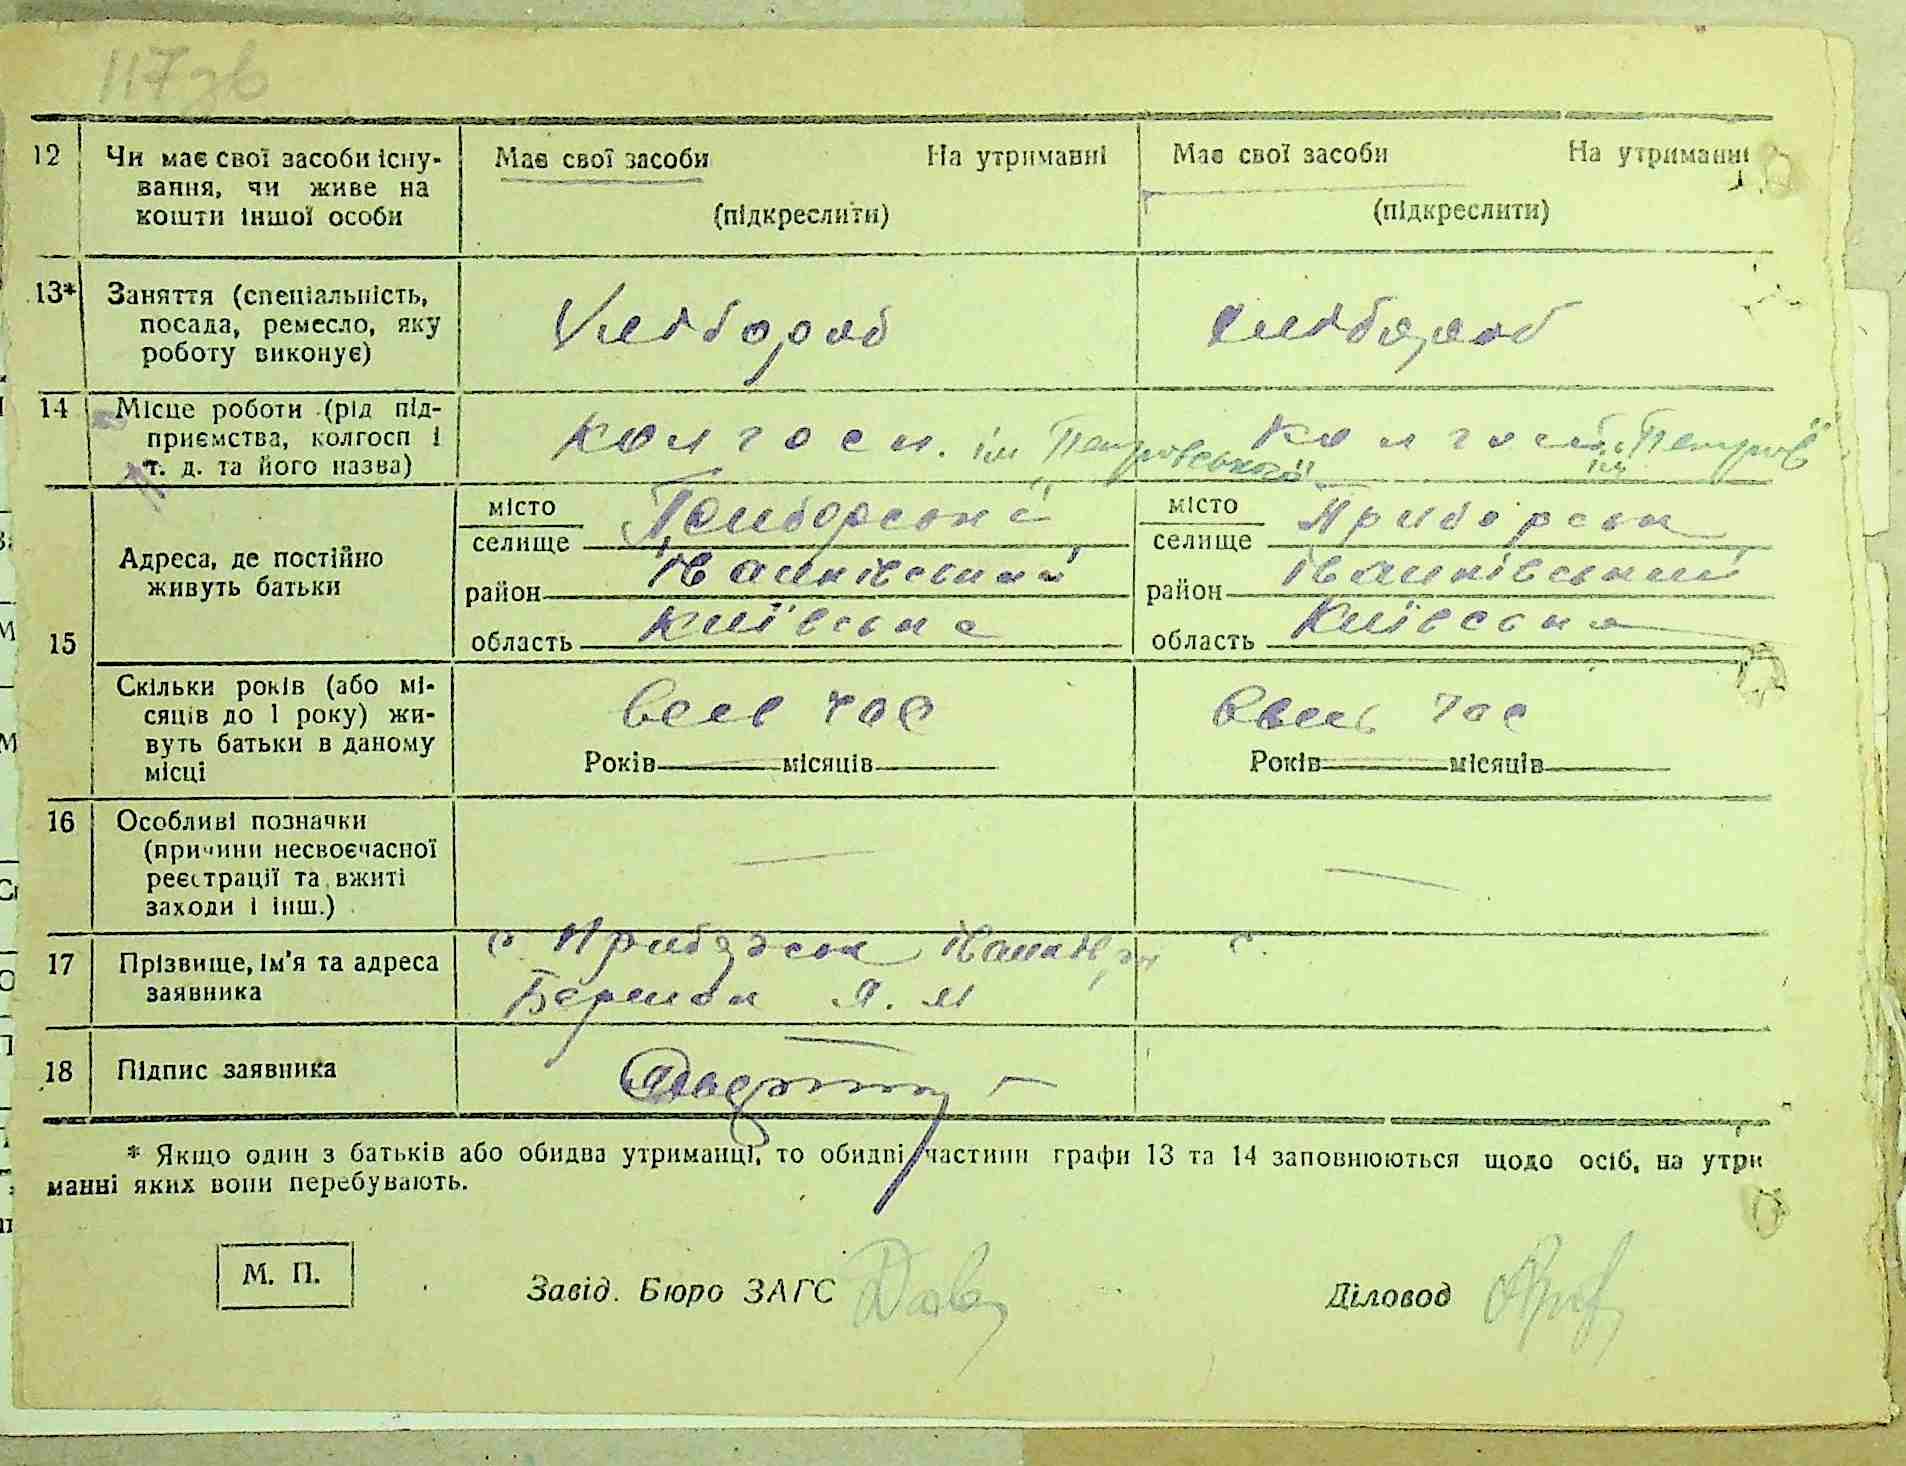 117 зв
12 Чи має свої засоби існу-
вання, чи живе на
кошти іншої особи
Має свої засоби На утриманні
(підкреслити)
Має свої засоби На утриманні
(підкреслити)
13* Заняття (спеціальність,
посада, ремесло, яку
роботу виконує)
Хлібороб
Хлібороб
14 Місце роботи (рід під-
приємства, колгосп і
т. д. та його назва)
Колгосп. ім Петровського
Колгосп ім "Петров"
15
Адреса, де постійно
живуть батьки
місто
селище Приборська
район Іванківський
область Київська
місто
селище Приборськ
район Іванківський
область Київська
Скільки років (або мі-
сяців до 1 року) жи-
вуть батьки в даному
місці
весь час
Років місяців
ввесь час
Років місяців
16 Особливі позначки
(причини несвоєчасної
реєстрації та вжиті
заходи і інш.)
17 Прізвище, ім'я та адреса
заявника
с. Приборськ Іванків рн с.
Я. М
18 Підпис заявника
* Якщо один з батьків або обидва утриманці, то обидві частини графи 13 та 14 заповнюються щодо осіб, на утри
манні яких вони перебувають.
М. П.
Завід. Бюро ЗАГС
Діловод